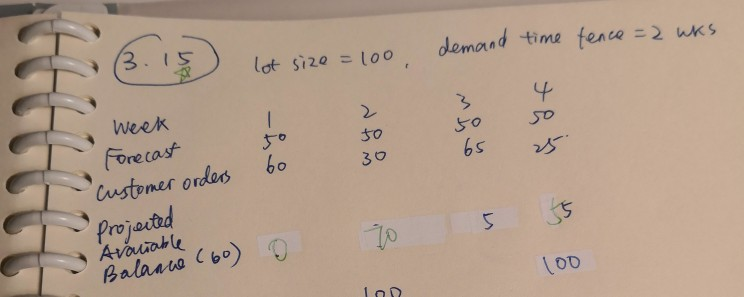 3.15 lot size = 100, demand time fence = 2 wks
Week 1 2 3 4
Forecast 50 50 50 50
Customer orders 60 30 65 25
Projected
Available
Balance (60) 0 70 5 55
100 100